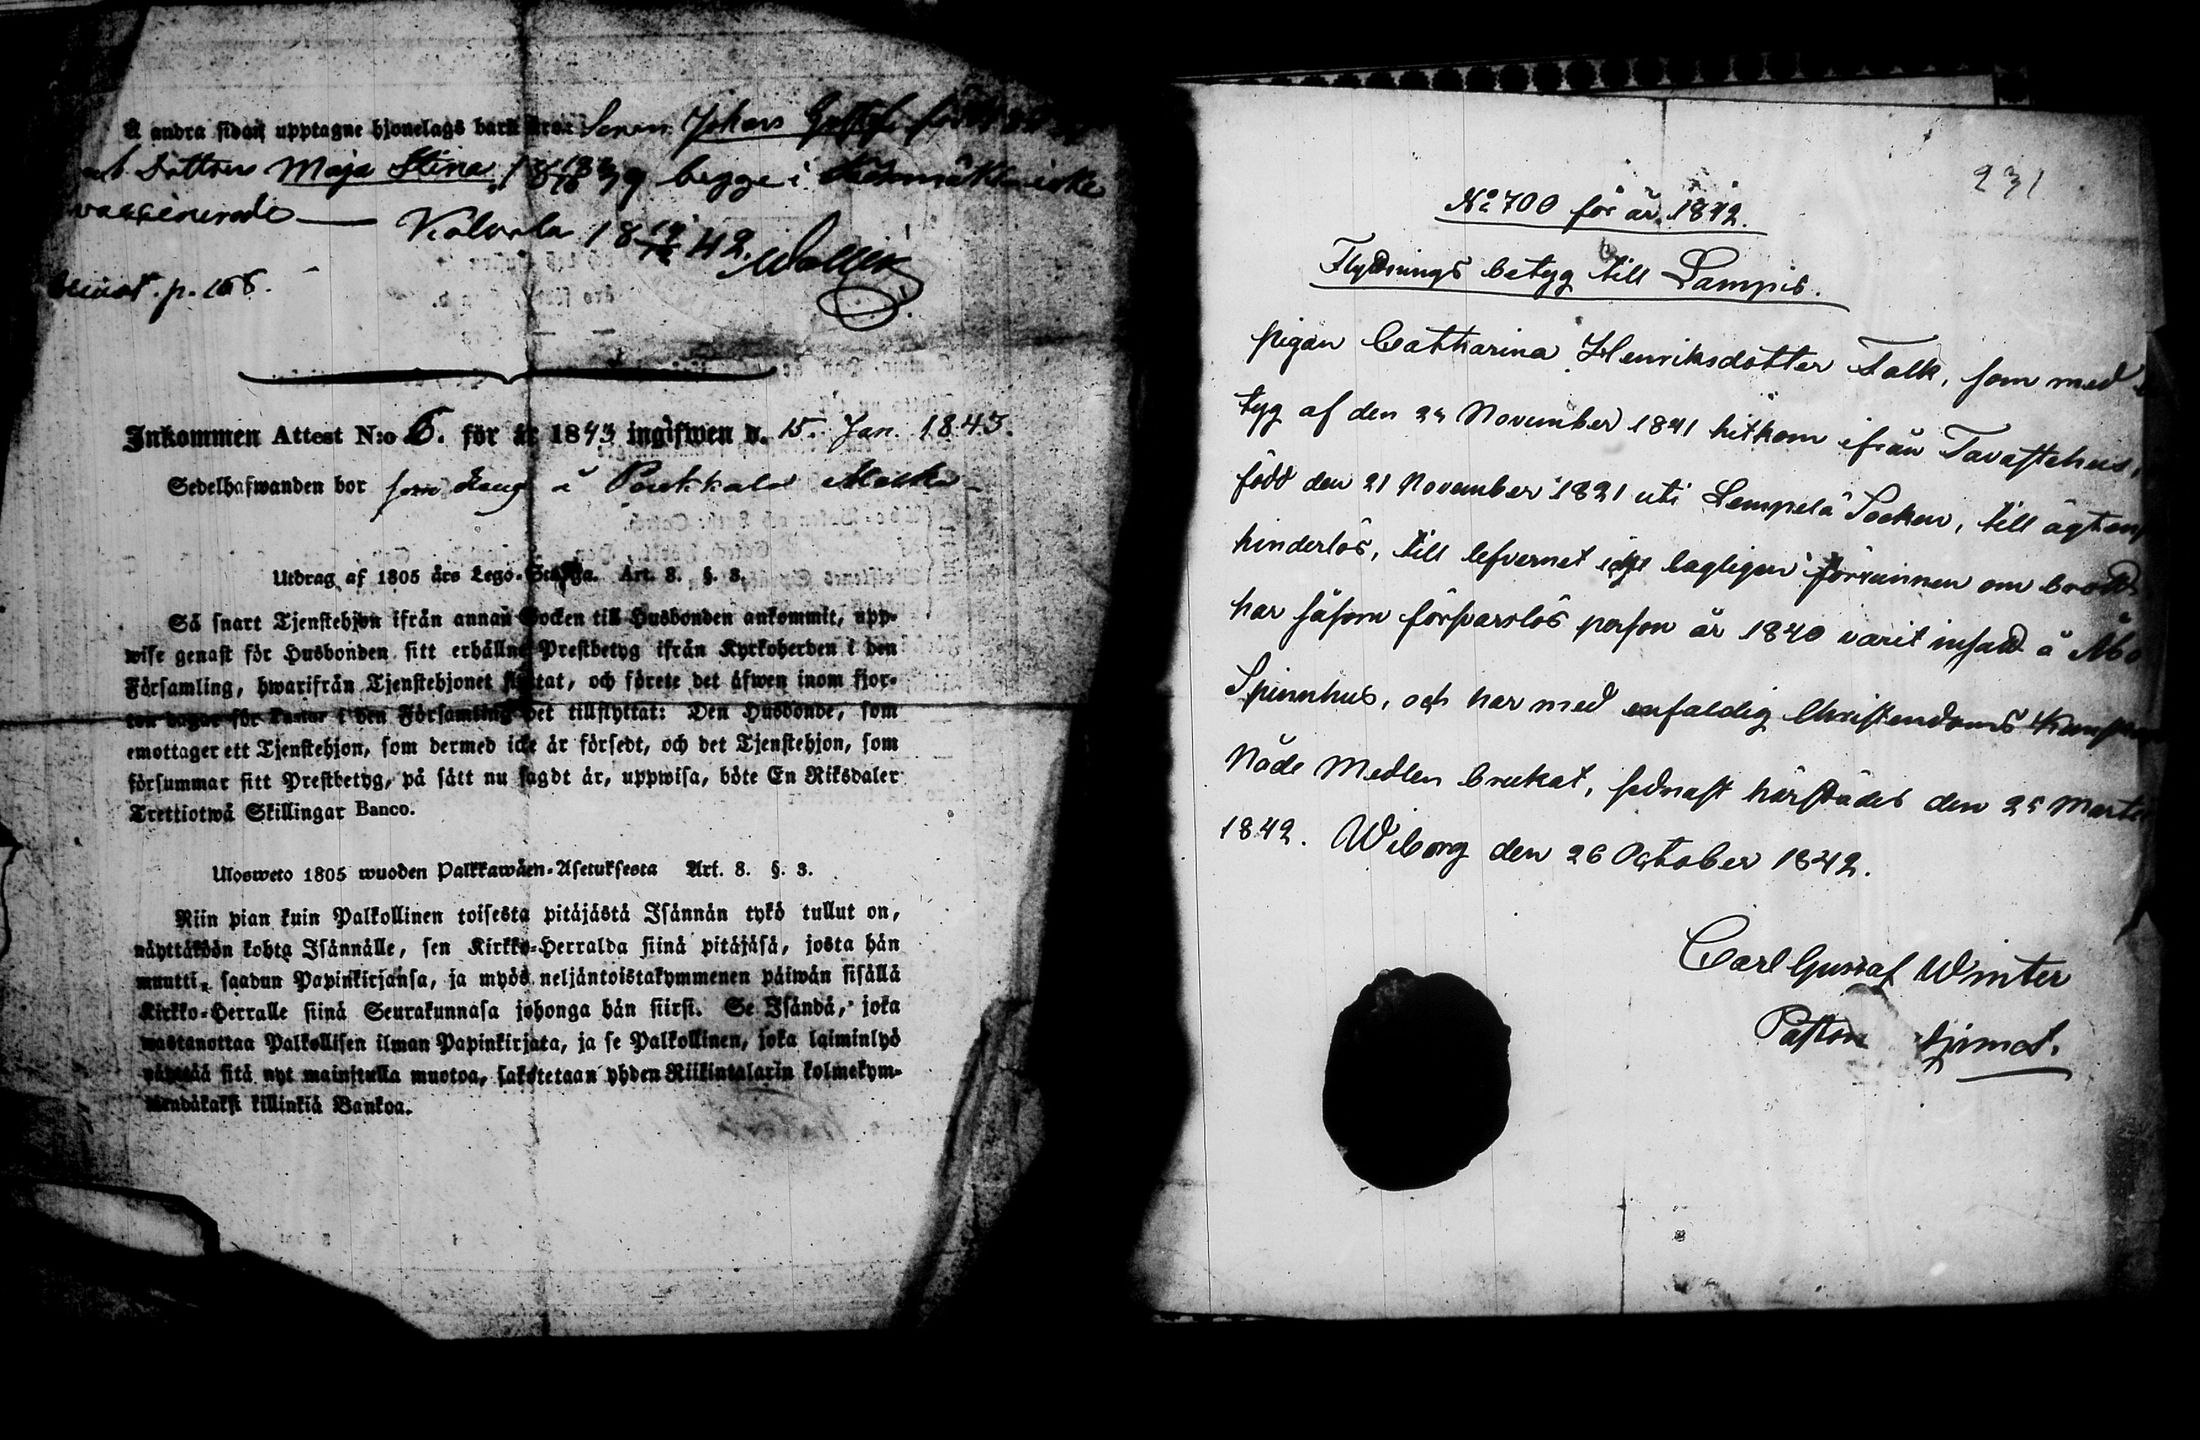 Å andra sidan upptagne hjonelags barn äro: Sonen Johan
och Dottren Maja Stina begge i icke
vaccinerade — Kalvola 18 42.
p. 166.
Inkommen Attest N:o 6. för år 1843 ingifwen d. 15. Jan. 1843.
Sedelhafwanden bor som å
Utdrag af 1805 års Lego-Stadga. Art. 8. §. 3.
Så snart Tjenstehjon ifrån annan Socken till Husbonden ankommit, upp-
wise genast för Husbonden sitt erhållne Prestbetyg ifrån Kyrkoherden i den
Församling, hwarifrån Tjenstehjonet flyttat, och förete det äfwen inom fjor-
ton dagar för i den Församling det tillflyttat: Den Husbonde, som
emottager ett Tjenstehjon, som dermed icke är försedt, och det Tjenstehjon, som
försummar sitt Prestbetyg, på sätt nu sagdt är, uppwisa, böte En Riksdaler
Trettiotwå Skillingar Banco.
Ulosweto 1805 wuoden Palkkawäen-Asetuksesta Art. 8. §. 3.
Niin pian kuin Palkollinen toisesta pitäjästä Isännän tykö tullut on,
näyttäköön kohta Isännälle, sen Kirkko-Herralda siinä pitäjäsä, josta hän
muutti, saadun Papinkirjansa, ja myös neljäntoistakymmenen päiwän sisällä
Kirkko-Herralle siinä Seurakunnasa johonga hän siirsi. Se Isändä, joka
wastanottaa Palkollisen ilman Papinkirjata, ja se Palkollinen, joka laiminlyö
näyttää sitä nyt mainitulla muotoa, sakotetaan yhden Riikintalarin kolmekym-
mendäkaksi killinkiä Bankoa.
231
No 700 för år 1842.
Flyttnings betyg till Lampis.
pigan Catharina Henriksdotter Falk, som med
tyg af den 24 November 1841 hitkom ifrån Tavastehus,
född den 21 November 1821 uti Lempelä Socken, till ägtensk
hinderlös, till lefvernet icke lagligen förvunnen om brott
har såsom försvarslös person år 1840 varit insatt å Åbo
Spinnhus, och har med enfaldig Christendoms Kunskap
Nåde Medlen brukat, sednast härstädes den 25 Martii
1842. Wiborg den 26 October 1842.
Carl Gustaf Winter
Pastor